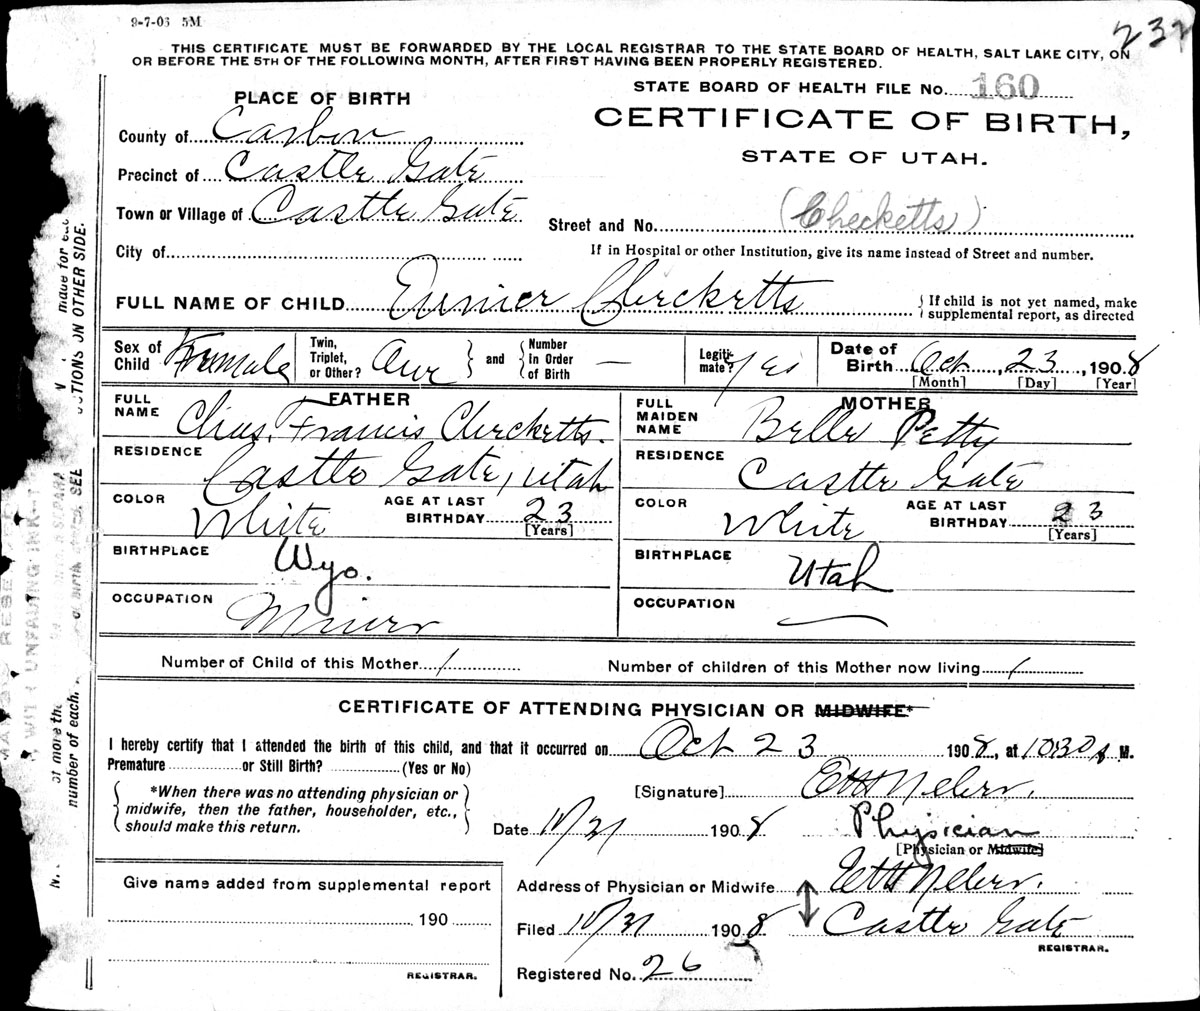 9-7-06 5M
232
THIS CERTIFICATE MUST BE FORWARDED BY THE LOCAL REGISTRAR TO THE STATE BOARD OF HEALTH, SALT LAKE CITY, ON
OR BEFORE THE 5TH OF THE FOLLOWING MONTH, AFTER FIRST HAVING BEEN PROPERLY REGISTERED.
STATE BOARD OF HEALTH FILE No. 160
PLACE OF BIRTH
CERTIFICATE OF BIRTH,
STATE OF UTAH.
County of Carbon
Precinct of Castle Gate
Town or Village of Castle Gate
Street and No. (Checketts)
City of
If in Hospital or other Institution, give its name instead of Street and number.
FULL NAME OF CHILD Checketts
{ If child is not yet named, make
supplemental report, as directed
Sex of Child Female
Twin, Triplet, or Other? One } and { Number In Order of Birth —
Legiti- mate? Yes
Date of Birth Oct. 23, 1908
[Month] [Day] [Year]
FATHER
FULL NAME Chas. Francis Checketts.
RESIDENCE Castle Gate, Utah
COLOR White
AGE AT LAST BIRTHDAY 23
[Years]
BIRTHPLACE Wyo.
OCCUPATION Miner
MOTHER
FULL MAIDEN NAME Belle Petty
RESIDENCE Castle Gate
COLOR White
AGE AT LAST BIRTHDAY 23
[Years]
BIRTHPLACE Utah
OCCUPATION —
Number of Child of this Mother 1
Number of children of this Mother now living 1
CERTIFICATE OF ATTENDING PHYSICIAN OR MIDWIFE*
I hereby certify that I attended the birth of this child, and that it occurred on Oct 23 1908, at 10:30 A M.
Premature or Still Birth? (Yes or No)
*When there was no attending physician or
midwife, then the father, householder, etc.,
should make this return.
[Signature]
Date 10/31 1908 Physician
[Physician or Midwife]
Give name added from supplemental report
190
REGISTRAR.
Address of Physician or Midwife
Filed 10/31 1908 Castle Gate
REGISTRAR.
Registered No. 26
CTIONS ON OTHER SIDE.
SEE
UNFADING INK
of more the
number of each.